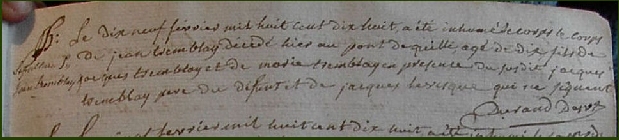 B: Le dix neuf fevrier mil huit cent dix huit, a été inhumé le corps le corps
De jean tremblay décédé hier au pont de agé de dix fils de
jean tremblay jacques tremblay et de marie tremblay en presence du susdit jacques
tremblay pere du défunt et de jacques levesque qui ne signent
Durand
fevrier mil huit cent dix huit a été inhumé le corps